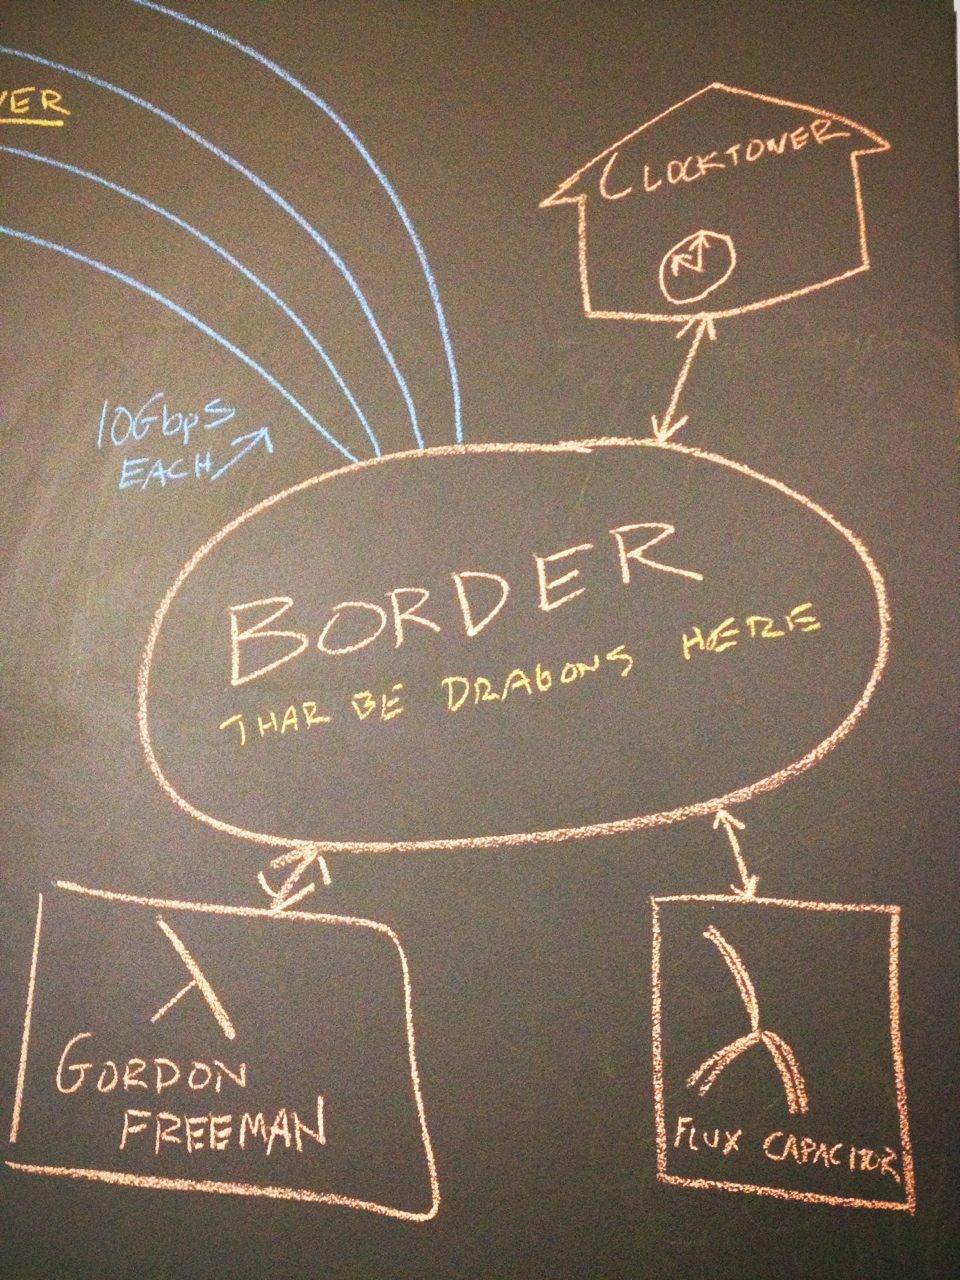 VER
CLOCKTOWER
10Gbps
EACH
BORDER
THAR BE DRAGONS HERE
λ
GORDON
FREEMAN
FLUX CAPACITOR